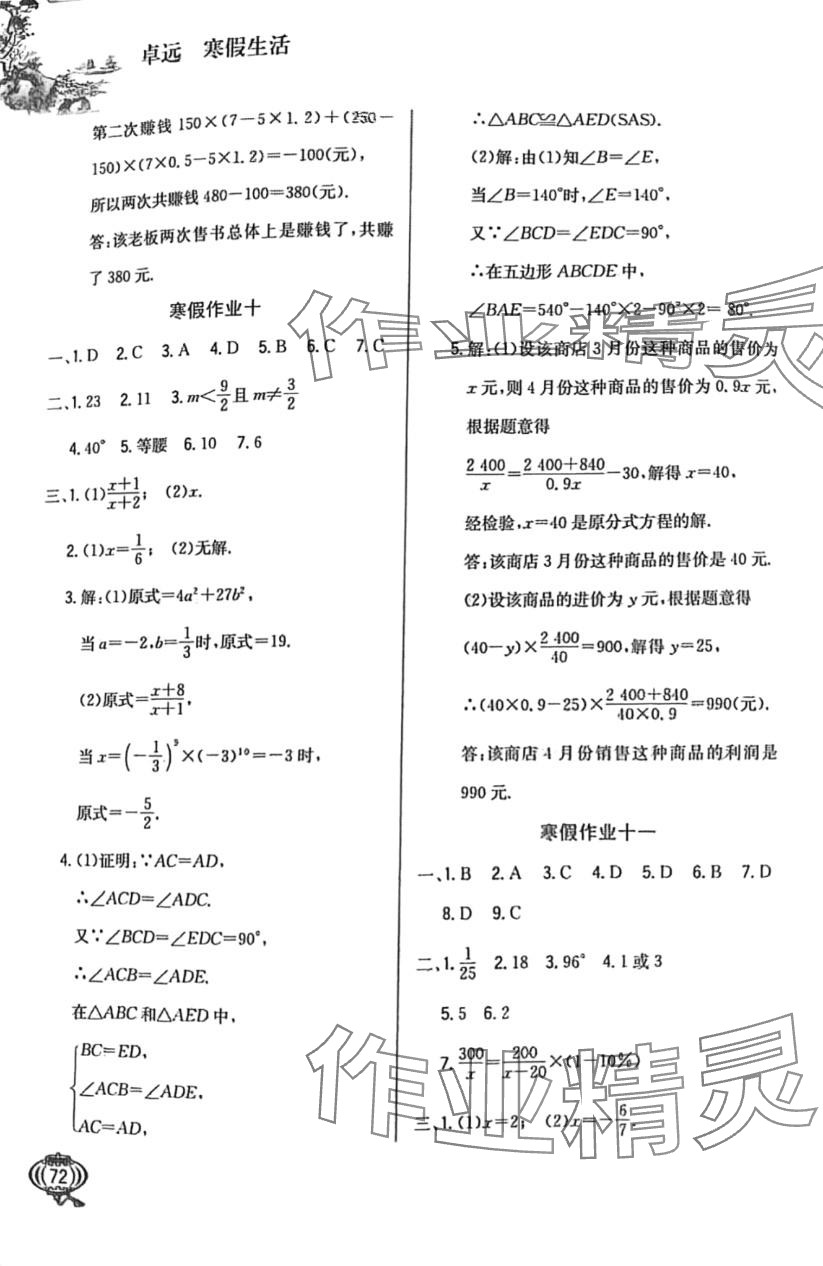 卓远　寒假生活
第二次赚钱 150×(7－5×1.2)＋(250－
150)×(7×0.5－5×1.2)＝－100(元),
所以两次共赚钱 480－100＝380(元).
答:该老板两次售书总体上是赚钱了,共赚
了 380 元.
寒假作业十
一、1.D　2.C　3.A　4.D　5.B　6.C　7.C
二、1.23　2.11　3.m＜9/2且 m≠3/2
4.40°　5.等腰　6.10　7.6
三、1.(1)(x+1)/(x+2);　(2)x.
2.(1)x＝1/6;　(2)无解.
3.解:(1)原式＝4a²＋27b²,
当 a＝－2,b＝1/3时,原式＝19.
(2)原式＝(x+8)/(x+1),
当 x＝(－1/3)⁹×(－3)¹⁰＝－3 时,
原式＝－5/2.
4.(1)证明:∵AC＝AD,
∴∠ACD＝∠ADC.
又∵∠BCD＝∠EDC＝90°,
∴∠ACB＝∠ADE.
在△ABC 和△AED 中,
BC＝ED,
∠ACB＝∠ADE,
AC＝AD,
72
∴△ABC≌△AED(SAS).
(2)解:由(1)知∠B＝∠E,
当∠B＝140°时,∠E＝140°,
又∵∠BCD＝∠EDC＝90°,
∴在五边形 ABCDE 中,
∠BAE＝540°－140°×2－90°×2＝80°.
5.解:(1)设该商店 3 月份这种商品的售价为
x 元,则 4 月份这种商品的售价为 0.9x 元,
根据题意得
2 400/x＝(2 400＋840)/0.9x－30,解得 x＝40,
经检验,x＝40 是原分式方程的解.
答:该商店 3 月份这种商品的售价是 40 元.
(2)设该商品的进价为 y 元,根据题意得
(40－y)×2 400/40＝900,解得 y＝25,
∴(40×0.9－25)×(2 400＋840)/(40×0.9)＝990(元).
答:该商店 4 月份销售这种商品的利润是
990 元.
寒假作业十一
一、1.B　2.A　3.C　4.D　5.D　6.B　7.D
8.D　9.C
二、1.1/25　2.18　3.96°　4.1 或 3
5.5　6.2
7.300/x＝200/(x－20)×(1－10%)
三、1.(1)x＝2;　(2)x＝－6/7.
作业精灵
作业精灵